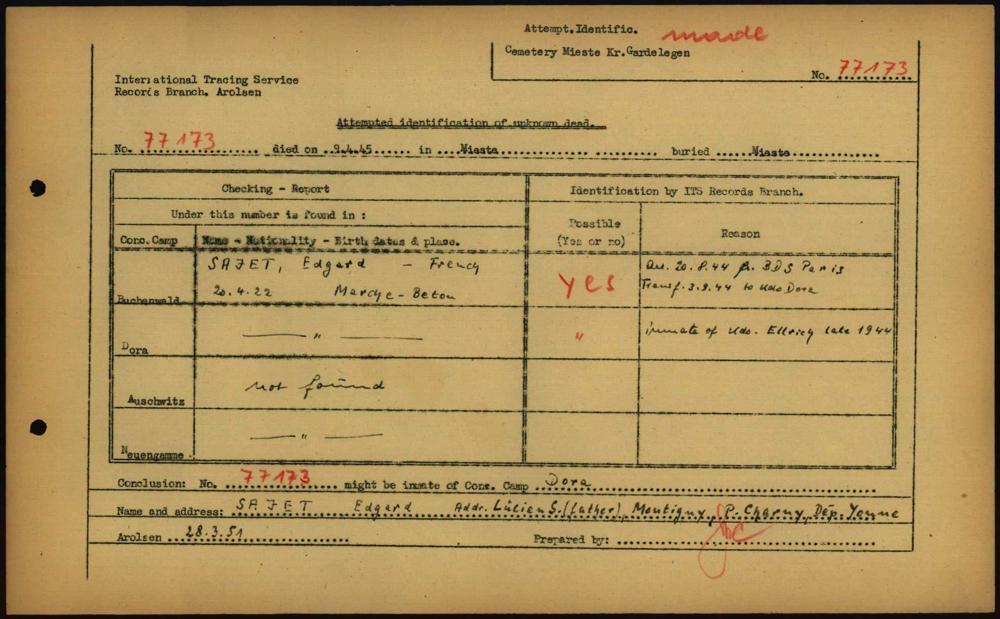 Attempt. Identific. made
Cemetery Mieste Kr. Gardelegen
No. 77173
International Tracing Service
Records Branch. Arolsen
Attempted identification of unknown dead.
No. 77173 died on 9.4.45 in Mieste buried Mieste
Checking - Report
Identification by ITS Records Branch.
Under this number is found in :
Possible
(Yes or no)
Reason
Conc. Camp Name - Nationality - Birth dates & place.
SAJET, Edgard - French
20.4.22 Marche-Beton
Buchenwald
yes
Arr. 20.8.44 fr. BDS Paris
Transf. 3.9.44 to Kdo Dora
Dora
— " —
"
inmate of Kdo. Ellrich late 1944
Auschwitz
not found
Neuengamme
— " —
Conclusion: No. 77173 might be inmate of Conc. Camp Dora
Name and address: SAJET Edgard Addr. Lucien S. (father), Montigny, P. Charny, Dép. Yonne
Arolsen 28.3.51 Prepared by: